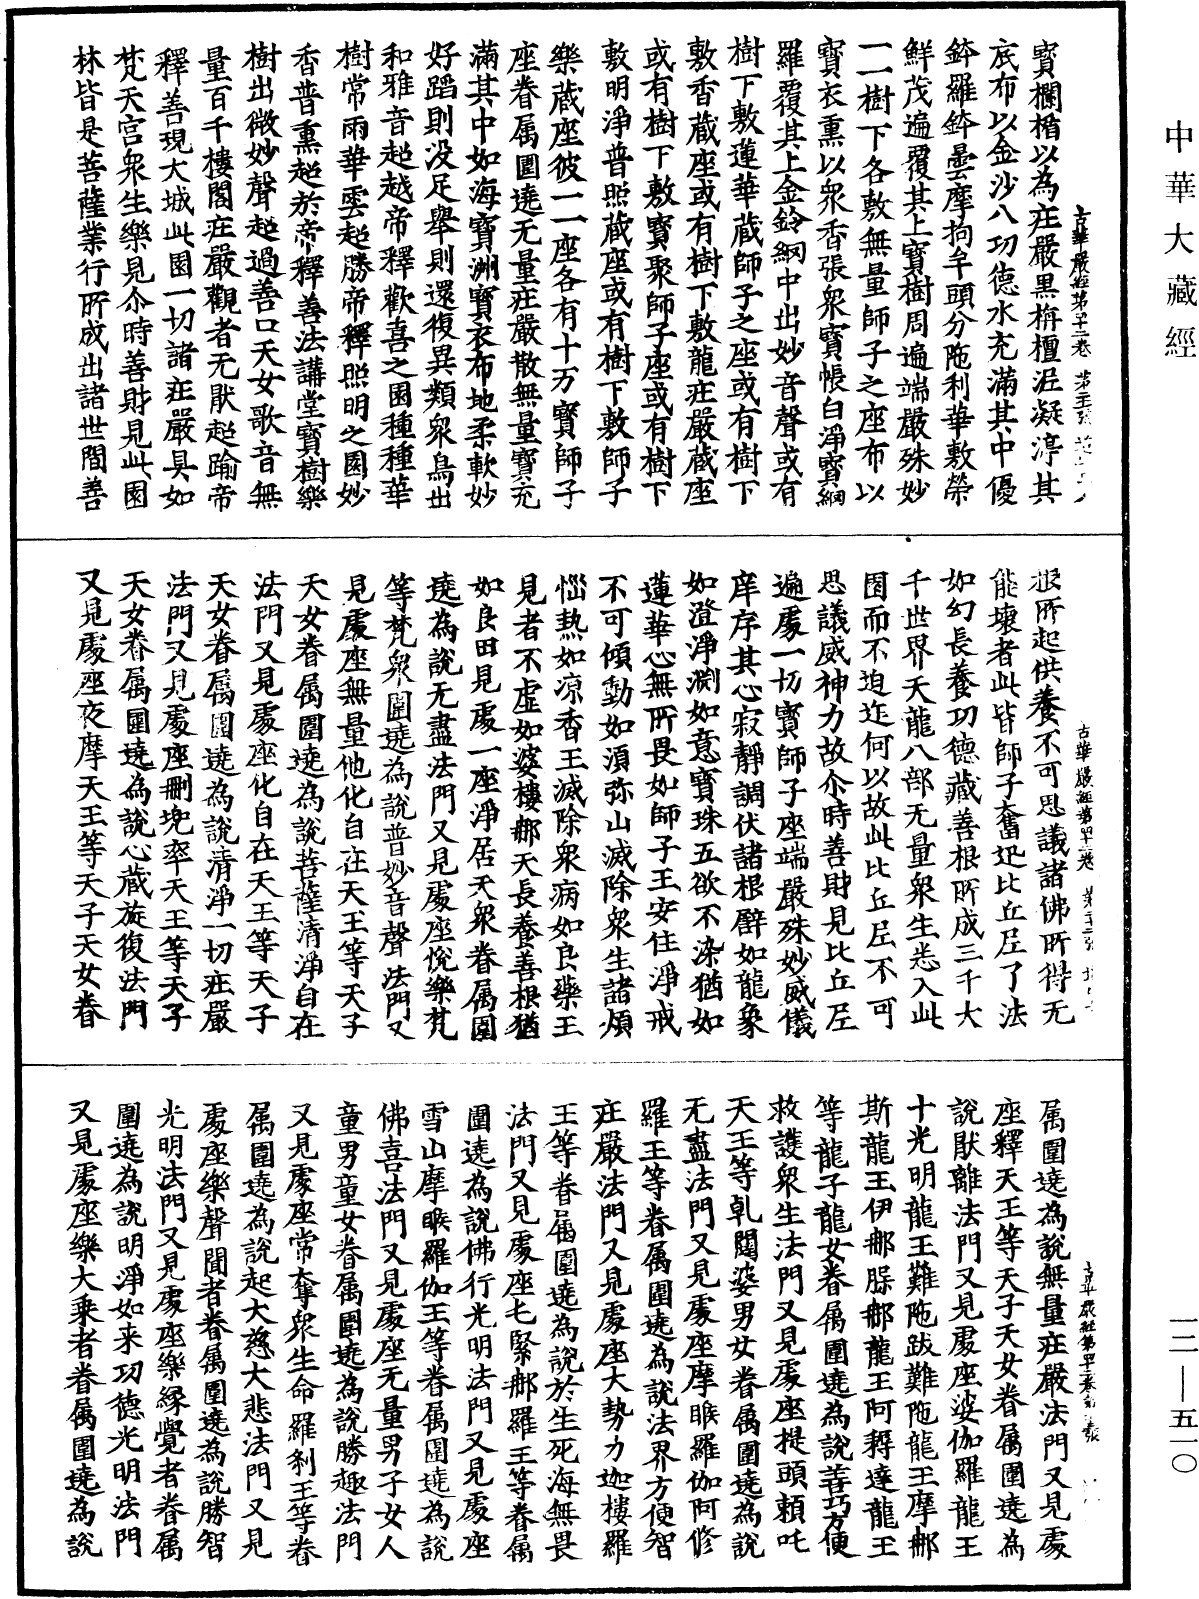 中華大藏經
寶欄楯以為庄嚴黒栴檀泥凝渟其
底布以金沙八功德水充滿其中優
鉢羅鉢曇摩拘牟頭分陁利華敷榮
鮮茂遍覆其上寶樹周遍端嚴殊妙
一一樹下各敷無量師子之座布以
寶衣熏以衆香張衆寶帳白淨寶綱
羅覆其上金鈴綱中出妙音聲或有
樹下敷蓮華蔵師子之座或有樹下
敷香蔵座或有樹下敷龍庄嚴蔵座
或有樹下敷寶聚師子座或有樹下
敷明淨普照蔵座或有樹下敷師子
樂蔵座彼一一座各有十万寶師子
座眷属圍遶无量庄嚴散無量寶充
滿其中如海寶洲寶衣布地柔軟妙
好蹈則没足舉則還復異類衆鳥出
和雅音超越帝釋歡喜之園種種華
樹常雨華雲超勝帝釋照明之園妙
香普熏超於帝釋善法講堂寶樹樂
樹出微妙聲超過善口天女歌音無
量百千樓閣庄嚴觀者无猒超踰帝
釋善現大城此園一切諸庄嚴具如
梵天宮衆生樂見尒時善財見此園
林皆是菩薩業行所成出諸世間善
根所起供養不可思議諸佛所得无
能壞者此皆師子奮迅比丘尼了法
如幻長養功德藏善根所成三千大
千世界天龍八部无量衆生悉入此
園而不迫迮何以故此比丘尼不可
思議威神力故尒時善財見比丘尼
遍處一切寶師子座端嚴殊妙威儀
庠序其心寂靜調伏諸根譬如龍象
如澄淨渕如意寶珠五欲不染猶如
蓮華心無所畏如師子王安住淨戒
不可傾動如須弥山滅除衆生諸煩
惱熱如凉香王滅除衆病如良藥王
見者不虚如婆樓那天長養善根猶
如良田見處一座淨居天衆眷属圍
遶為說无盡法門又見處座悅樂梵
等梵衆圍遶為說普妙音聲法門又
見處座無量他化自在天王等天子
天女眷属圍遶為說菩薩清淨自在
法門又見處座化自在天王等天子
天女眷属圍遶為說清淨一切庄嚴
法門又見處座刪兜率天王等天子
天女眷属圍遶為說心蔵旋復法門
又見處座夜摩天王等天子天女眷
属圍遶為說無量庄嚴法門又見處
座釋天王等天子天女眷属圍遶為
說猒離法門又見處座娑伽羅龍王
十光明龍王難陁跋難陁龍王摩那
斯龍王伊那䐿那龍王阿耨達龍王
等龍子龍女眷属圍遶為說善巧方便
救護衆生法門又見處座提頭頼吒
天王等乹闥婆男女眷属圍遶為說
无盡法門又見處座摩睺羅伽阿修
羅王等眷属圍遶為說法界方便智
庄嚴法門又見處座大勢力迦樓羅
王等眷属圍遶為說於生死海無畏
法門又見處座乇緊那羅王等眷属
圍遶為說佛行光明法門又見處座
雪山摩睺羅伽王等眷属圍遶為說
佛喜法門又見處座无量男子女人
童男童女眷属圍遶為說勝趣法門
又見處座常奪衆生命羅刹王等眷
属圍遶為說起大慈大悲法門又見
處座樂聲聞者眷属圍遶為說勝智
光明法門又見處座樂縁覺者眷属
圍遶為說明淨如来功德光明法門
又見處座樂大乗者眷属圍遶為說
一二—五一〇